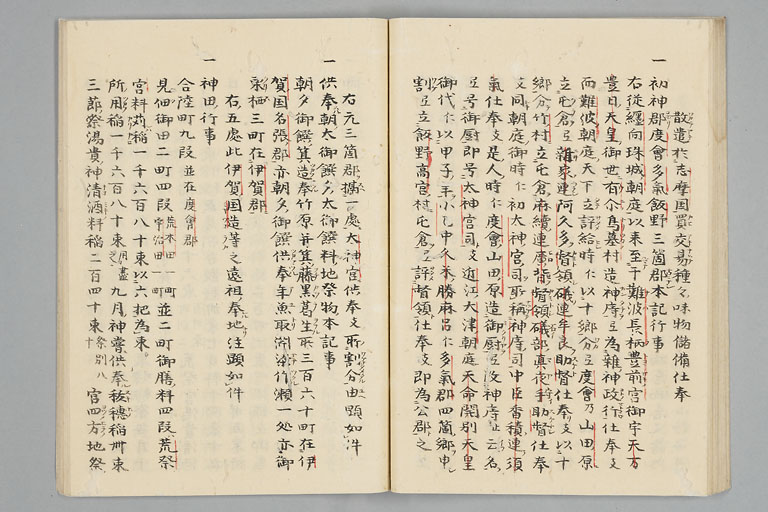 散遣於志摩国買交易種々味物儲備仕奉
一初神郡度會多氣飯野三箇郡本記行事
右従纒向珠城朝庭以来至于難波長柄豊前宮御宇天万
豊日天皇御世有尓鳥墓村造神庤弖為雑神政行仕奉支
而難波朝庭天下立評給時仁以十郷分弖度會乃山田原
立屯倉弖新家連阿久多督領礒連牟良助督仕奉支以十
郷分竹村立屯倉麻續連廣背督領礒部真夜手助督仕奉
支同朝庭御時仁初太神宮司所稱神庤司中臣香積連須
氣仕奉支是人時仁度會山田原造御厨弖改神庤止云名
弖号御厨即号太神宮司支近江大津朝庭天命開別天皇
御代仁以甲子年小乙中久米勝麻呂仁多氣郡四箇郷申
割弖立飯野高宮村屯倉弖評督領仕奉支即為公郡之
右元三箇郡攝一處太神宮供奉支所割分由顯如件
一供奉朝太御饌夕太御饌料地祭物本記事
朝夕御饌箕造奉竹原并箕藤黒葛生所三百六十町在伊
賀国名張郡亦朝夕御饌供奉年魚取淵梁作瀬一処亦御
栗栖三町在伊賀郡
右五處此伊賀国造等之遠祖奉地注顕如件
一神田行事
合陸町九段並在度會郡
見佃御田二町四段荒木田一町宇治田一町並二町御膳料四段荒祭
宮料苅稲一千六百八十束以六把為束
所用稲一千六百八十束之用盡九月神嘗供奉抜穂稲卅束
三節祭湯貴神清酒料稲二百四十束祭別八十束官四方地祭